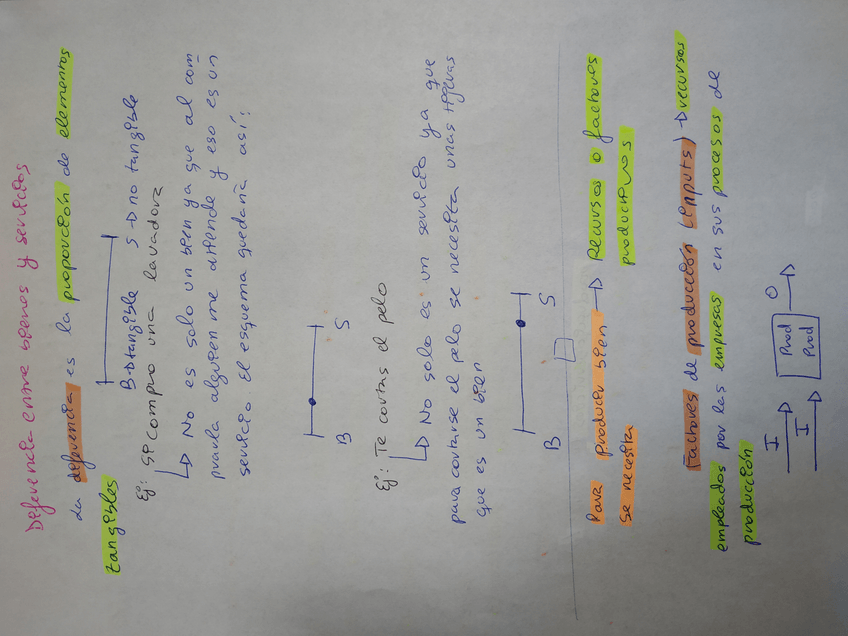 Diferencia entre bienes y servicios
La diferencia es la proporción de elementos
tangibles
B→tangible S→no tangible
Ej: Si compro una lavadora
↳ No es solo un bien ya que al com
prarla alguien me atiende y eso es un
servicio. El esquema quedaría así:
B S
Ej: Te cortas el pelo
↳ No solo es un servicio ya que
para cortarse el pelo se necesita unas tijeras
que es un bien
B S
Para producir bien → Recursos o factores
se necesita productivos
Factores de producción (inputs) → recursos
empleados por las empresas en sus procesos de
producción
I O
I Prod
Prod